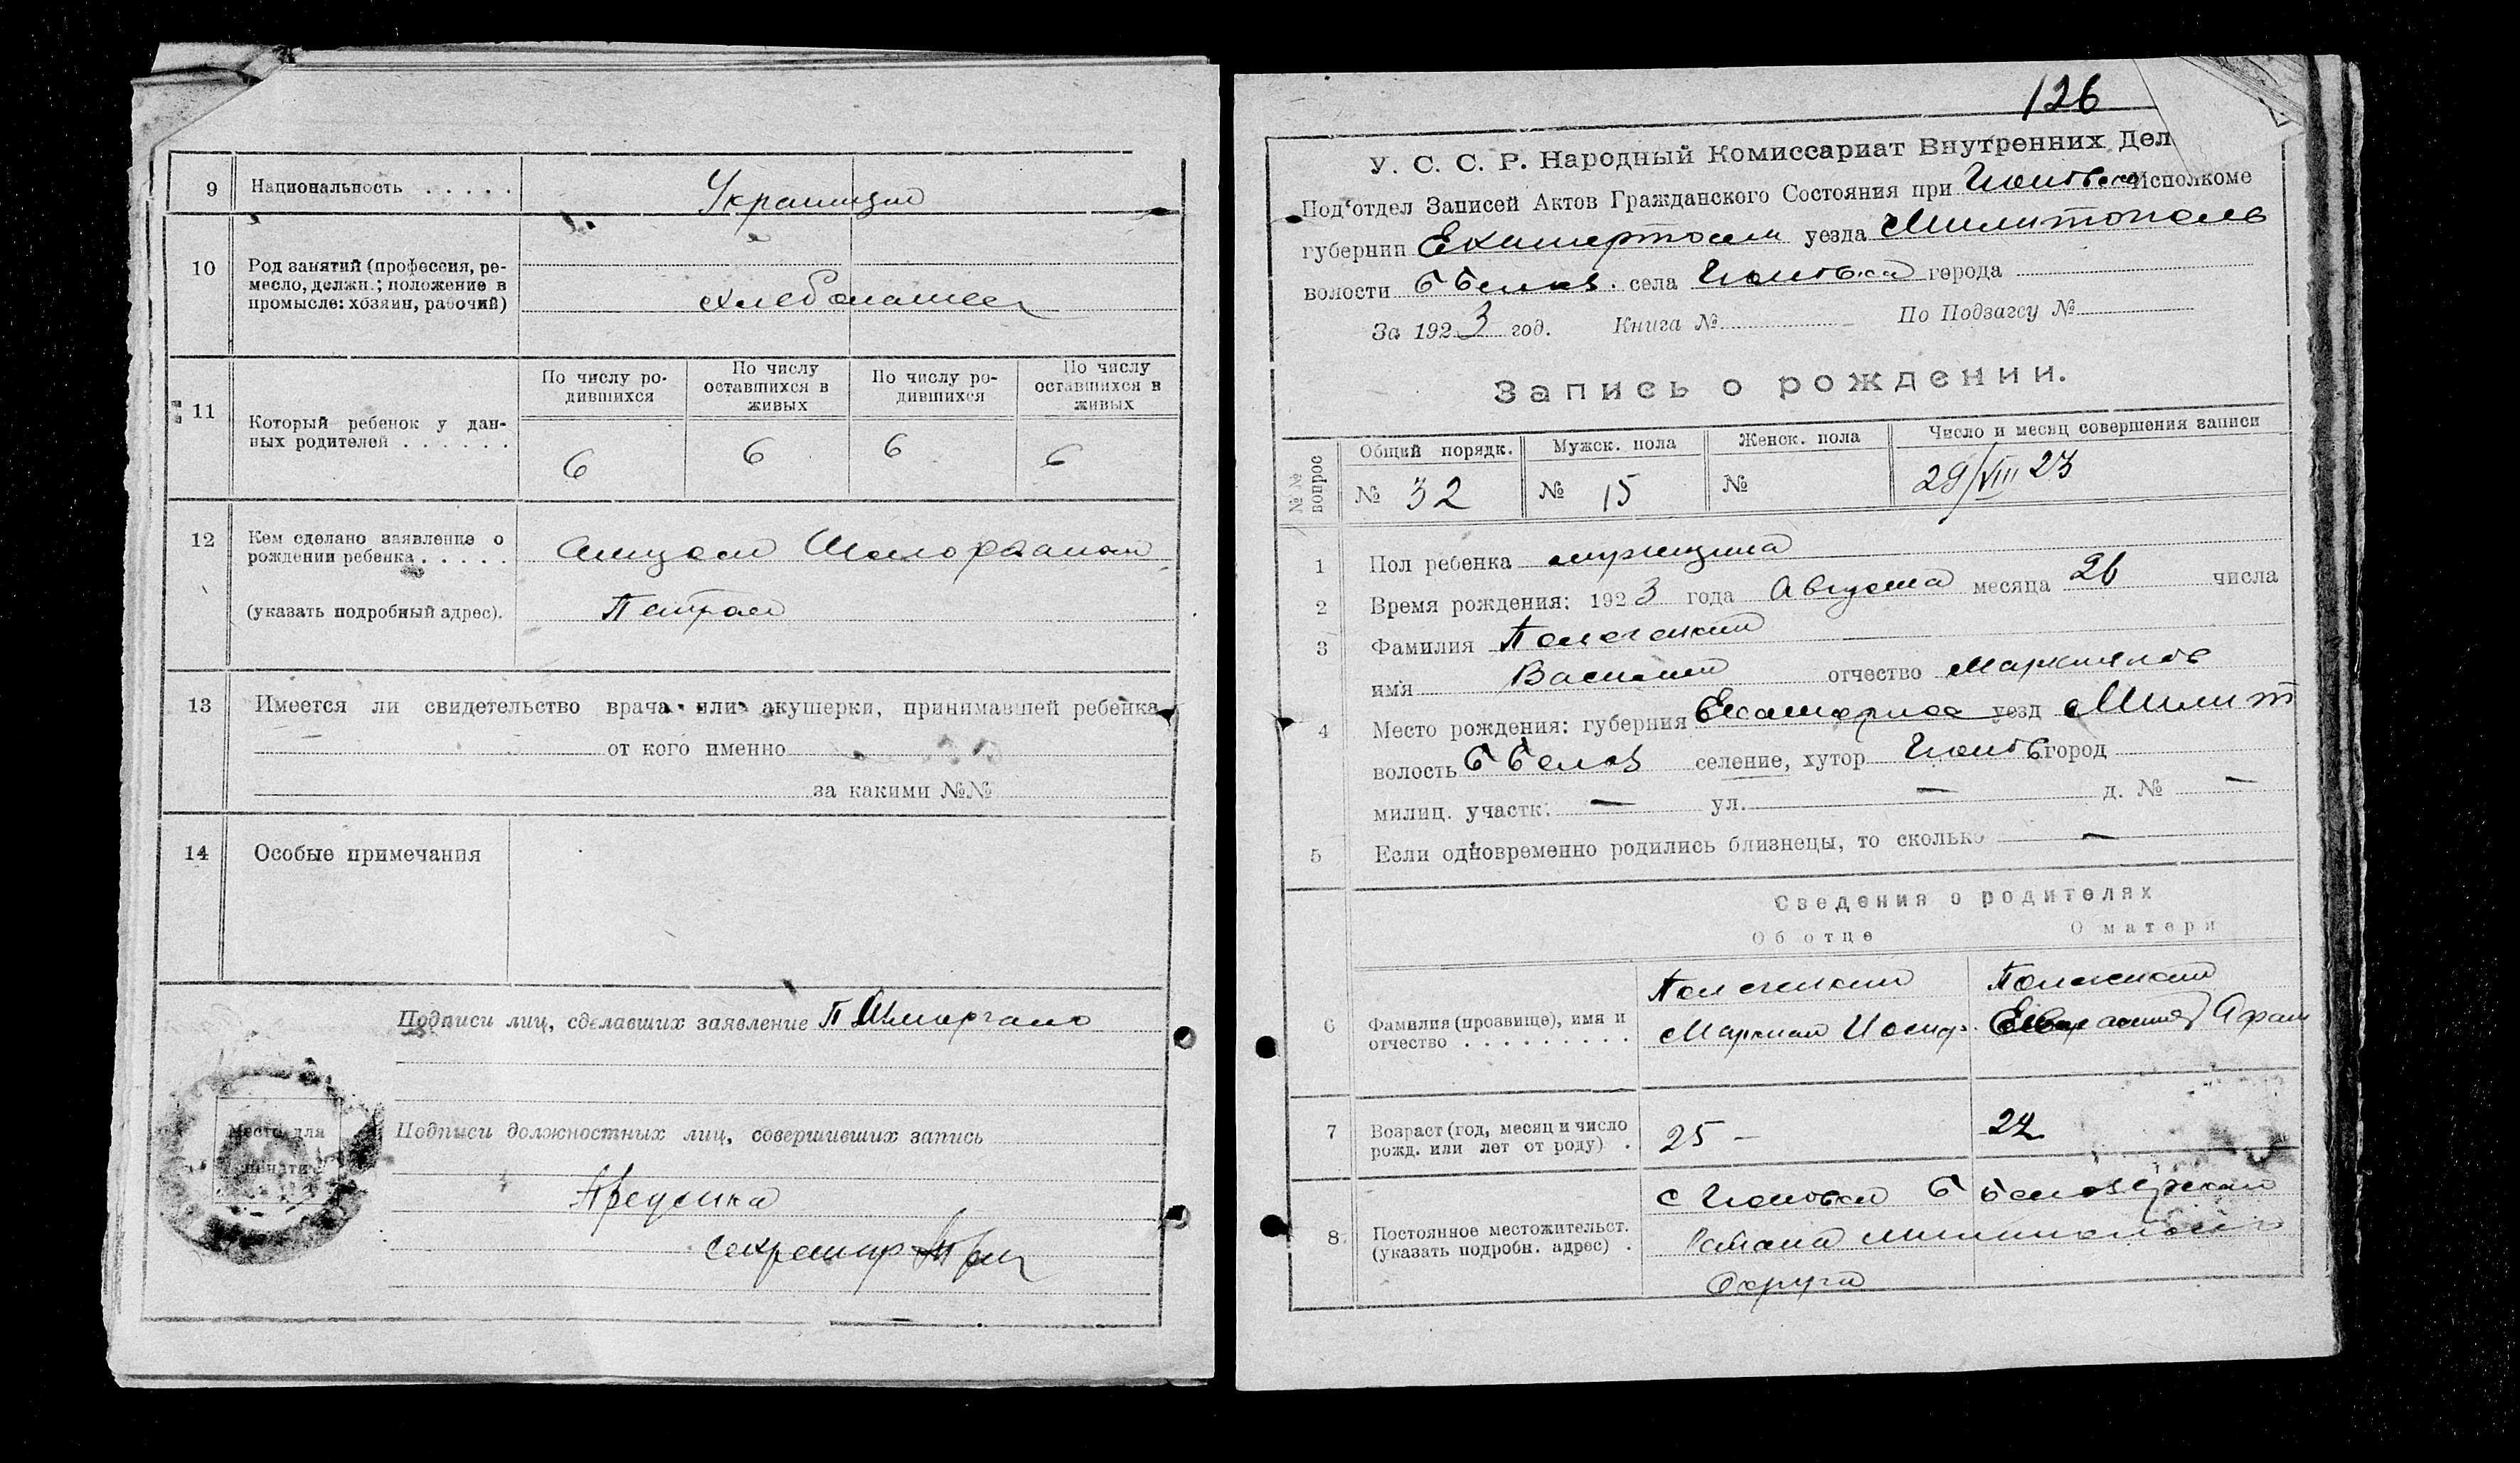 9 Национальность . . . . .
Украинцы
10 Род занятий (профессия, ре-
месло, должн.; положение в
промысле: хозяин, рабочий)
хлебопашец
11 Который ребенок у дан-
ных родителей . . . . . .
По числу ро-
дившихся
По числу
оставшихся в
живых
По числу ро-
дившихся
По числу
оставшихся в
живых
6 6 6 6
12 Кем сделано заявление о
рождении ребенка . . . . .
(указать подробный адрес).
Петром
13 Имеется ли свидетельство врача или акушерки, принимавшей ребенка
от кого именно
за какими №№
14 Особые примечания
Подписи лиц, сделавших заявление П
Место для
печати
Подписи должностных лиц, совершивших запись
Секретар
126
У. С. С. Р. Народный Комиссариат Внутренних Дел
Под‘отдел Записей Актов Гражданского Состояния при Исполкоме
губернии уезда
волости Б Белоз. села города
За 1923 год. Книга № По Подзагсу №
Запись о рождении.
№№ вопрос
Общий порядк. Мужск. пола Женск. пола Число и месяц совершения записи
№ 32 № 15 № 29/VIII 23
1 Пол ребенка мужщина
2 Время рождения: 1923 года Августа месяца 26 числа
3 Фамилия
имя Василий отчество Маркиянов
4 Место рождения: губерния уезд Милит
волость Б Белоз селение, хутор город
милиц. участк. — ул. — д. № —
5 Если одновременно родились близнецы, то сколько —
Сведения о родителях
Об отце О матери
6 Фамилия (прозвище), имя и
отчество . . . . . . . . .
Маркиан Иосиф. Афан
7 Возраст (год, месяц и число
рожд. или лет от роду) .
25 –
22
8 Постоянное местожительст.
(указать подробн. адрес) .
с Б Белозерской
Округа